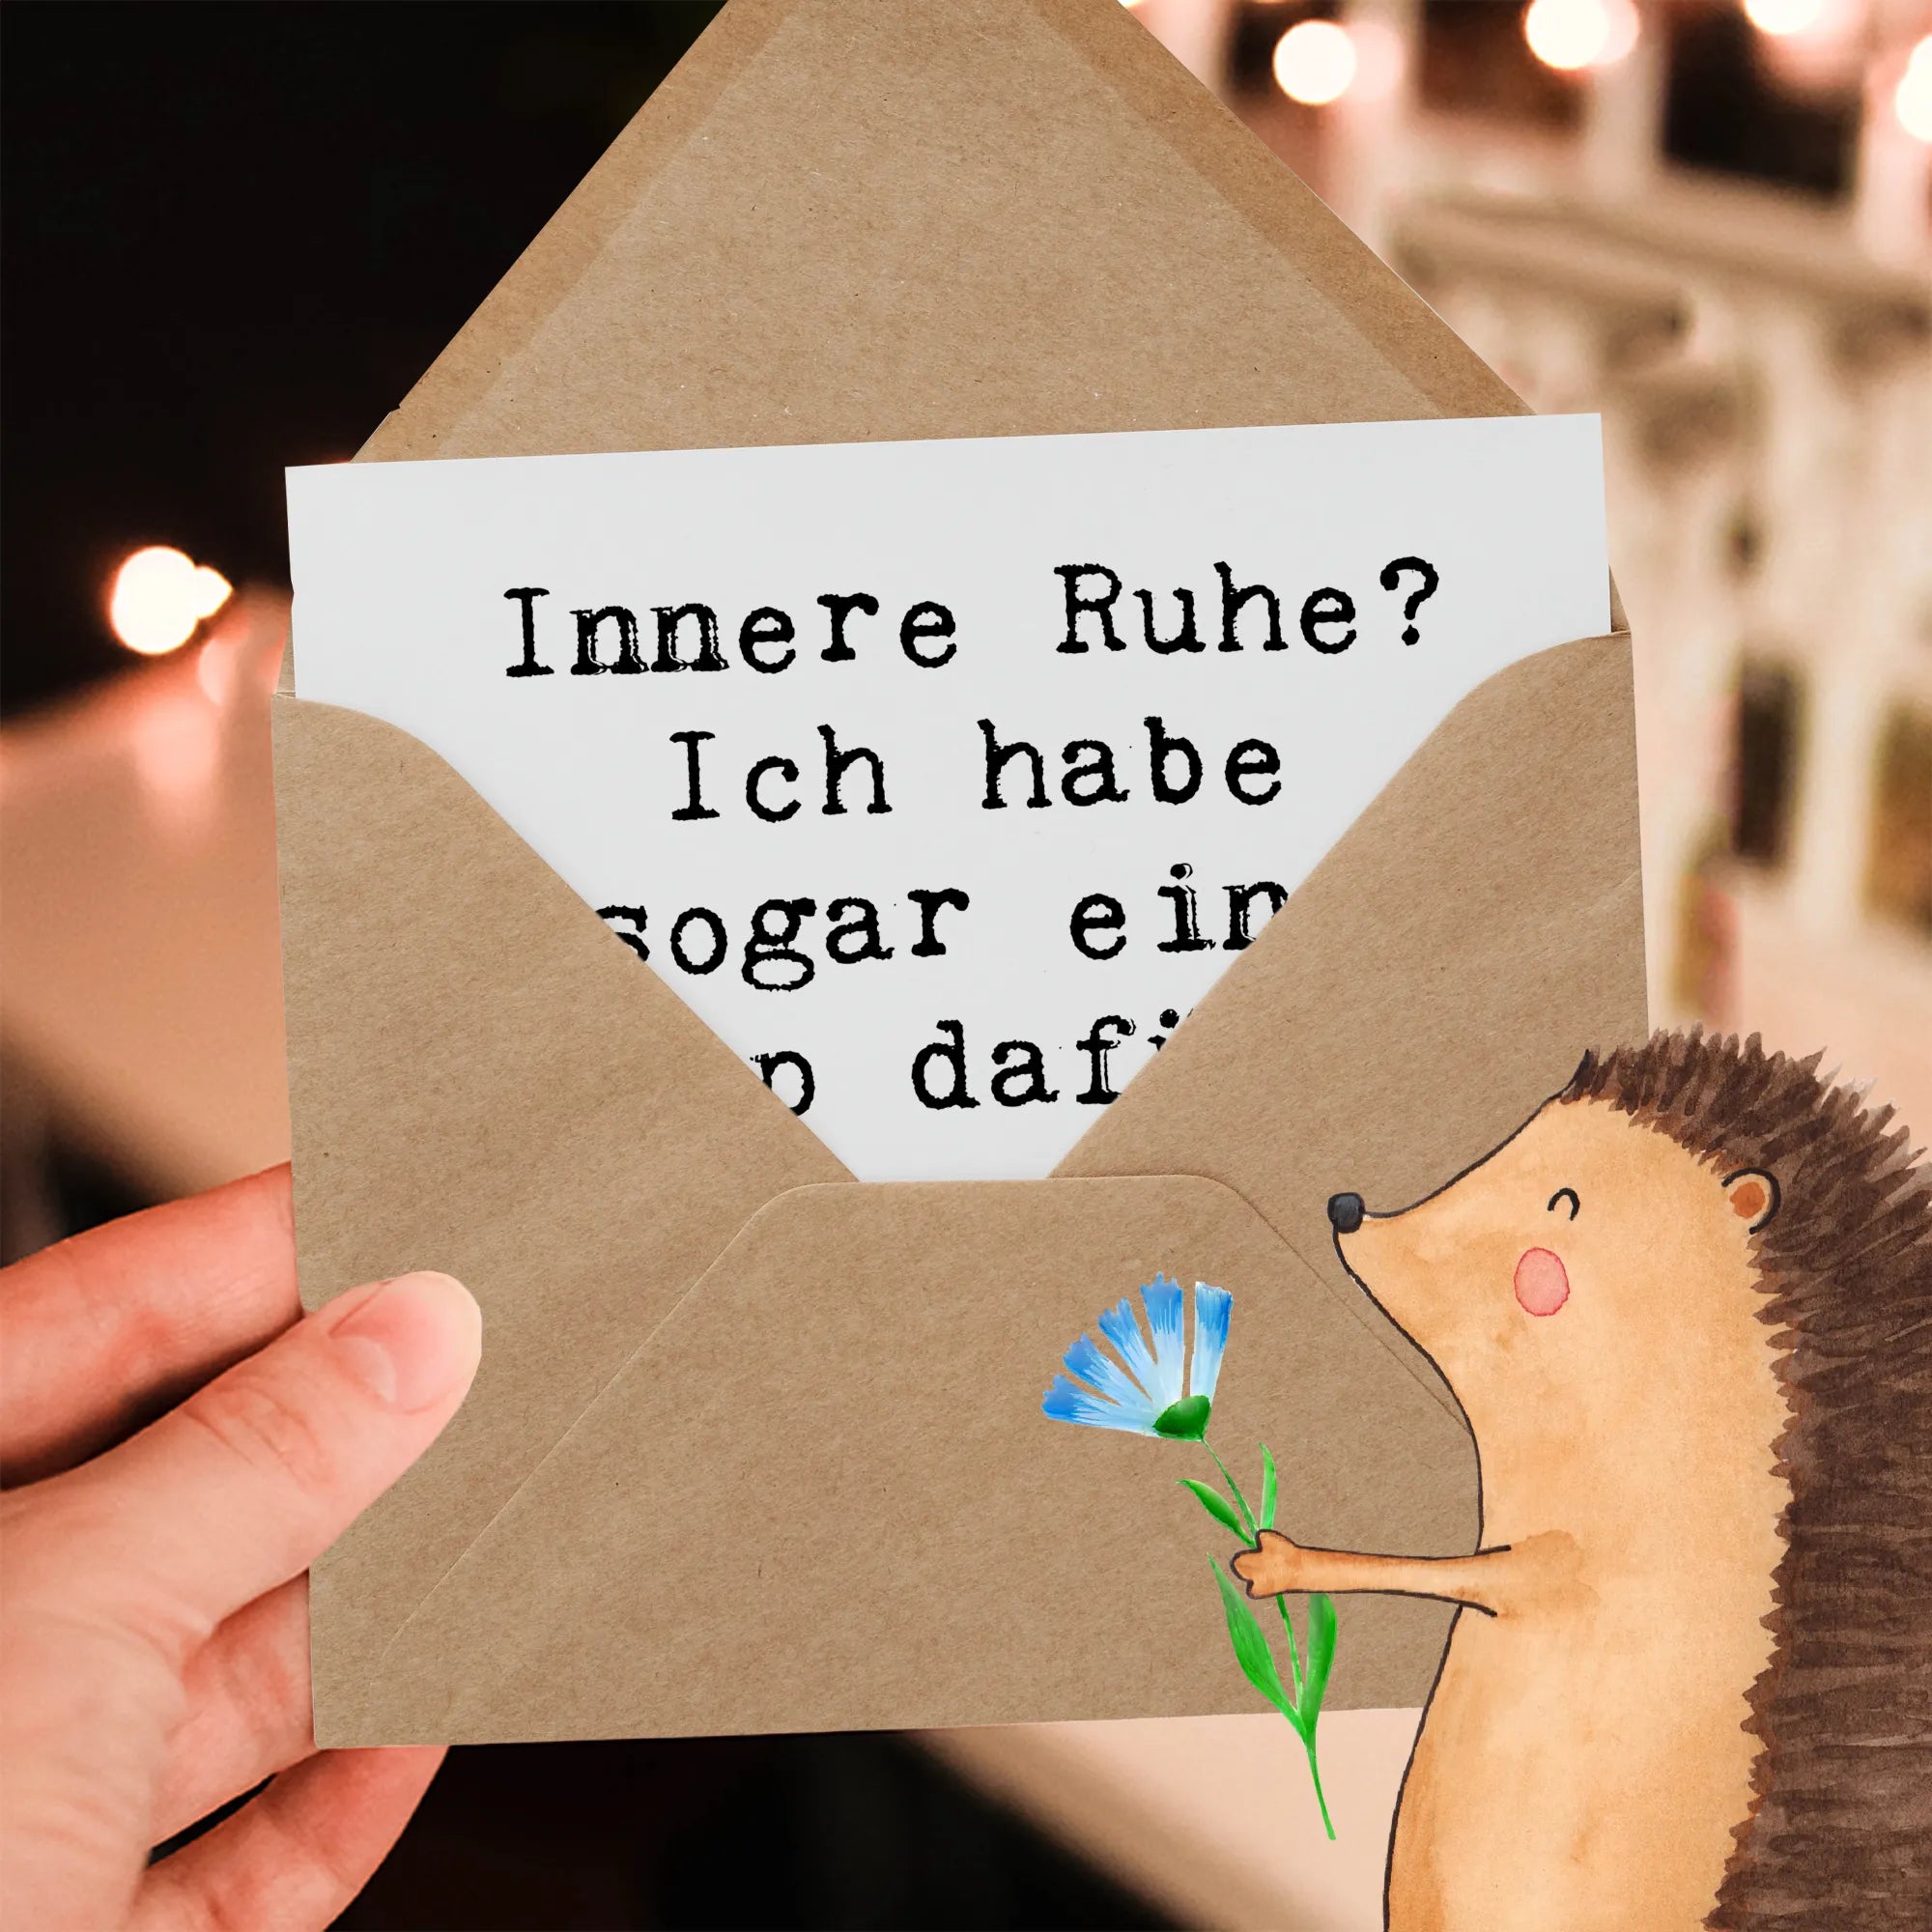 Innere Ruhe?
Ich habe
sogar ein